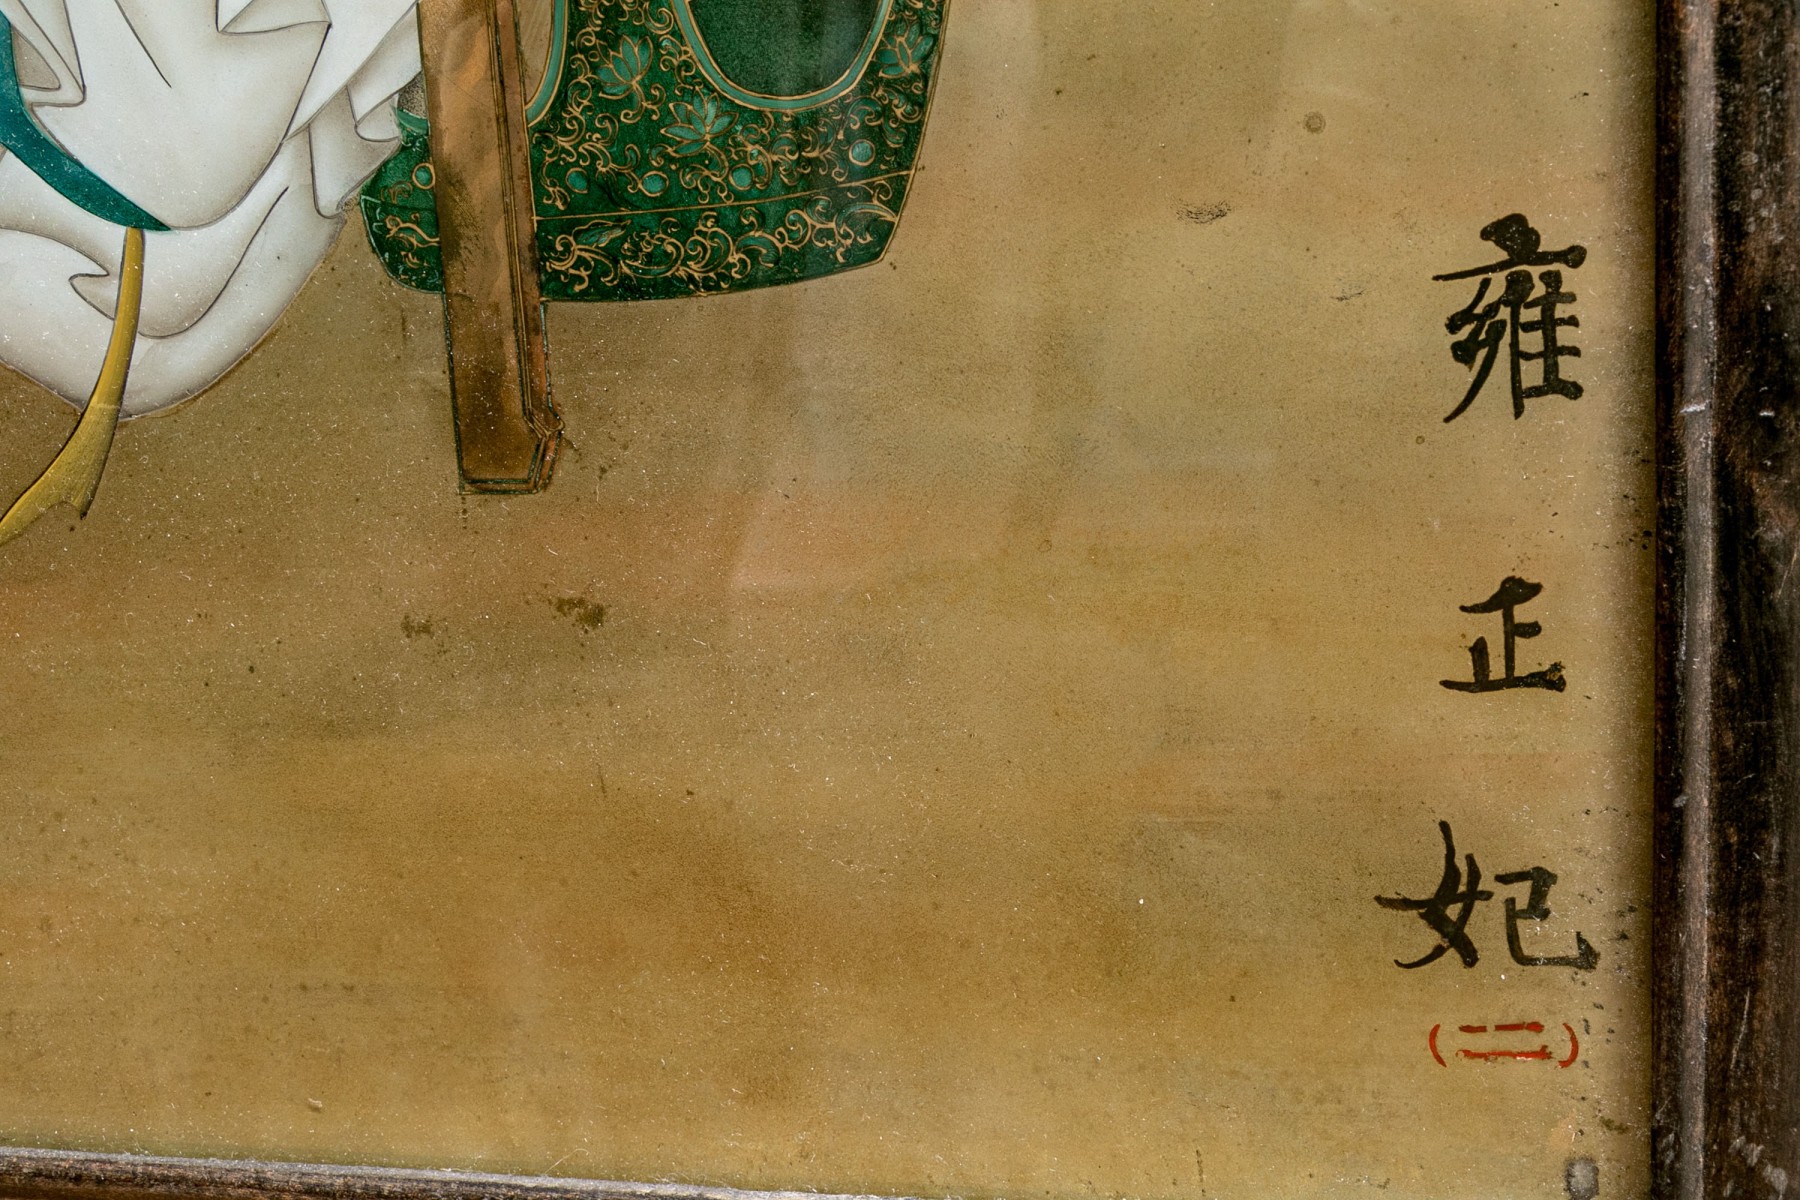 雍正妃
(二)